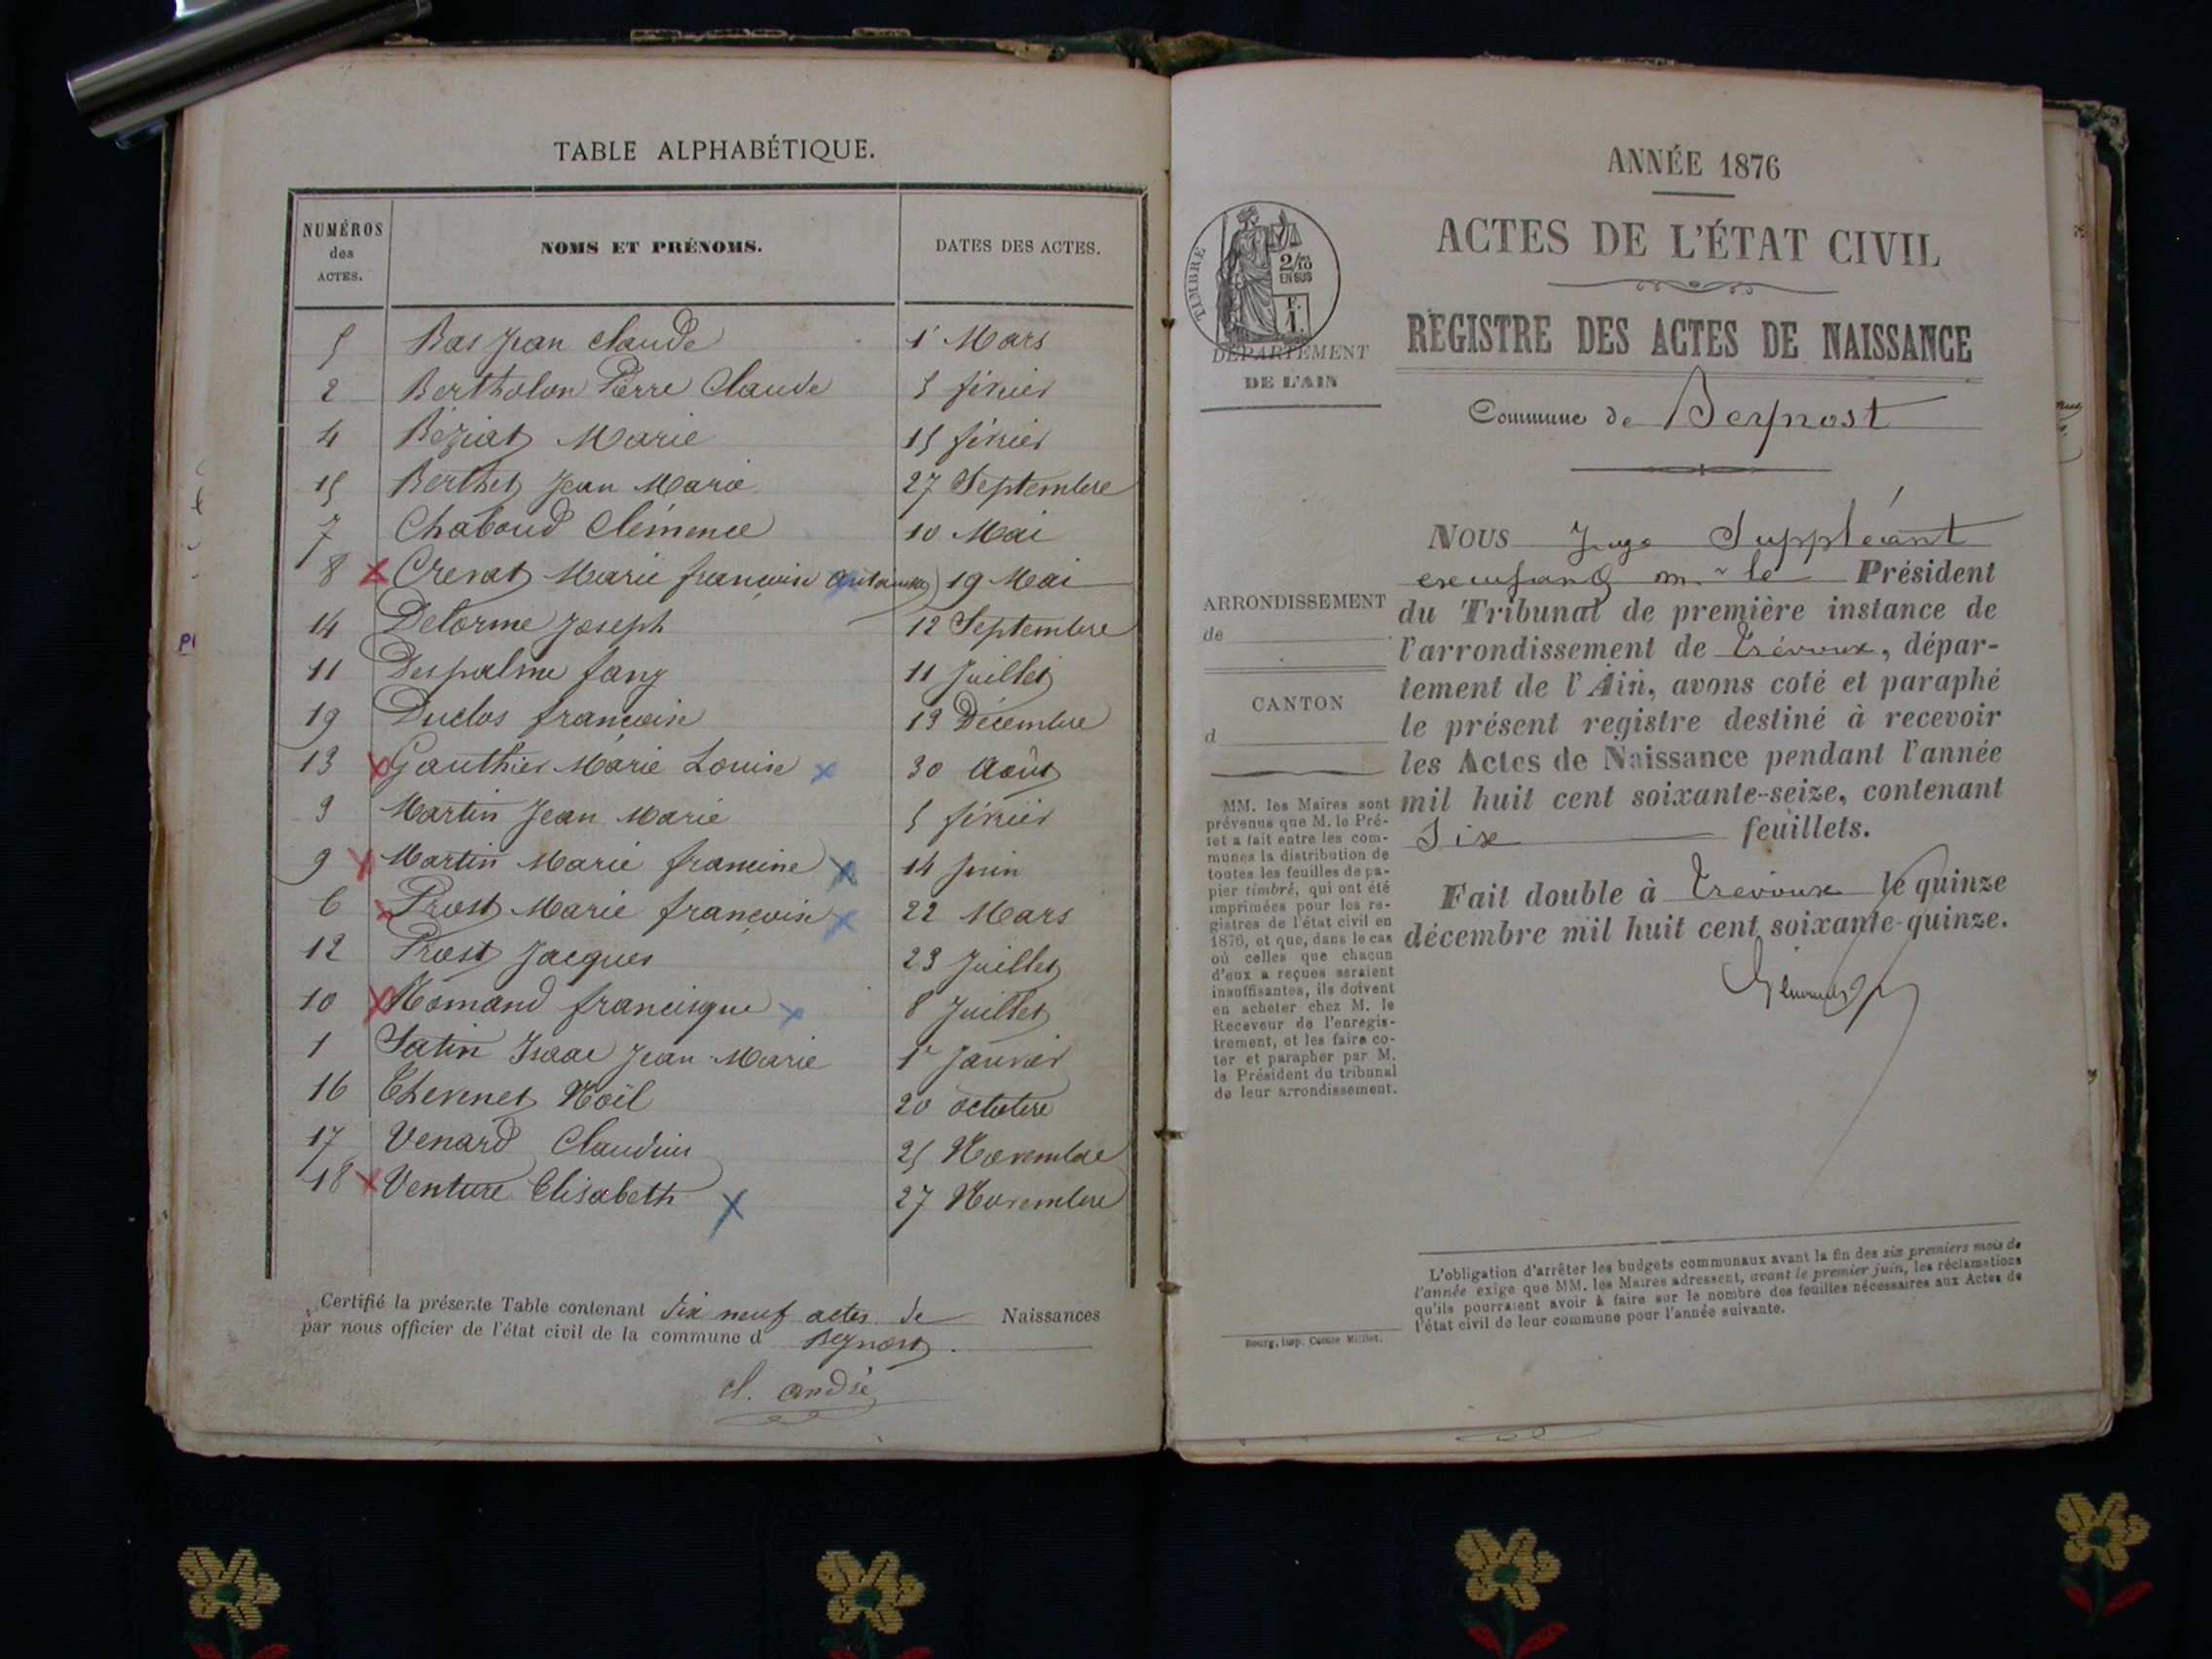 TABLE ALPHABÉTIQUE.
NUMÉROS des ACTES. NOMS ET PRÉNOMS. DATES DES ACTES.
5 Bas Jean Claude 1r Mars
2 Bertholon Pierre Claude 5 février
4 Béziat Marie 15 février
15 Berthet Jean Marie 27 Septembre
7 Chaboud Clémence 10 Mai
8 Crevat Marie françoise antoinette 19 Mai
14 Delorme Joseph 12 Septembre
11 Despalme fany 11 Juillet
19 Duclos françoise 19 Décembre
13 Gauthier Marie Louise 30 Août
3 Martin Jean Marie 5 février
9 Martin Marie francine 14 Juin
6 Prost Marie françoise 22 Mars
12 Prost Jacques 23 Juillet
10 Romand francisque 8 Juillet
1 Satin Isaac Jean Marie 1r Janvier
16 Thevenet Noël 20 octobre
17 Venard Claudius 25 Novembre
18 Venture Elisabeth 27 Novembre
Certifié la présente Table contenant dix neuf actes de Naissances
par nous officier de l'état civil de la commune d Beynost.
cl. andré
PI
ANNÉE 1876
ACTES DE L'ÉTAT CIVIL
REGISTRE DES ACTES DE NAISSANCE
Commune de Beynost
TIMBRE
2/10 EN SUS
F. 1.
DÉPARTEMENT
DE L'AIN
ARRONDISSEMENT
de
CANTON
d
MM. les Maires sont
prévenus que M. le Pré-
fet a fait entre les com-
munes la distribution de
toutes les feuilles de pa-
pier timbré, qui ont été
imprimées pour les re-
gistres de l'état civil en
1876, et que, dans le cas
où celles que chacun
d'eux a reçues seraient
insuffisantes, ils doivent
en acheter chez M. le
Receveur de l'enregis-
trement, et les faire co-
ter et parapher par M.
le Président du tribunal
de leur arrondissement.
NOUS Juge Suppléant
m. le Président
du Tribunal de première instance de
l'arrondissement de Trévoux, dépar-
tement de l'Ain, avons coté et paraphé
le présent registre destiné à recevoir
les Actes de Naissance pendant l'année
mil huit cent soixante-seize, contenant
Six feuillets.
Fait double à Trevoux le quinze
décembre mil huit cent soixante-quinze.
L'obligation d'arrêter les budgets communaux avant la fin des six premiers mois de
l'année exige que MM. les Maires adressent, avant le premier juin, les réclamations
qu'ils pourraient avoir à faire sur le nombre des feuilles nécessaires aux Actes de
l'état civil de leur commune pour l'année suivante.
Bourg, imp. Comte Milliet.